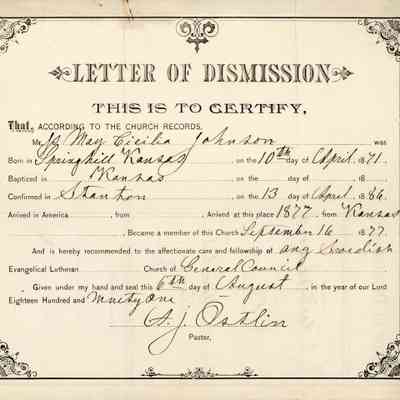 LETTER OF DISMISSION
THIS IS TO CERTIFY,
That, ACCORDING TO THE CHURCH RECORDS.
Mr May Cicilia Johnson was
Born in Springhill Kansas, on the 10th day of April 1871.
Baptized in Kansas, on the day of 18
Confirmed in Stanton, on the 13 day of April 1886
Arrived in America, from, Arrived at this place 1877 from Kansas
, Became a member of this Church September 16 1877.
And is hereby recommended to the affectionate care and fellowship of any Swedish
Evangelical Lutheran Church of General Council
Given under my hand and seal this 6th day of August, in the year of our Lord
Eighteen Hundred and Ninety One
A. J. Östlin
Pastor,